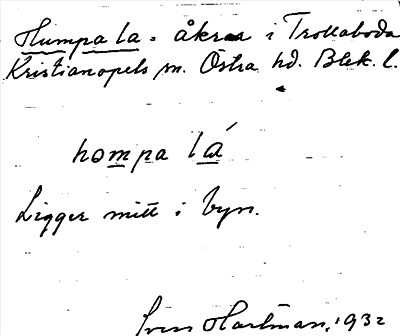 Humpa la = åkrar i Trollaboda
Kristianopels sn. Östra hd. Blek. l.
hompa lá
Ligger mitt i byn.
Sven Hartman, 1932